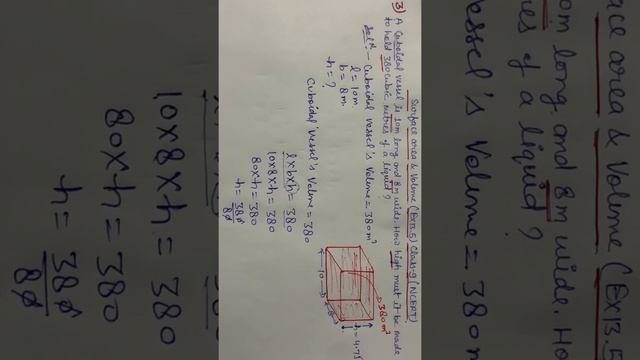 Surface area & Volume (EX13.5) Class-9 (NCERT)
3) A Cuboidal vessel is 10m long and 8m wide. How high must it be made
to hold 380 cubic metres of a liquid?
Solⁿ:- Cuboidal vessel's Volume = 380m³
l = 10m
b = 8m
h = ?
Cuboidal vessel's Volume = 380
l×b×h = 380
10×8×h = 380
80×h = 380
h = 380
80
380m³
10
8
h = 4.75
face area & Volume (EX13.5
om long and 8m wide. Ho
res of a liquid?
vessel's Volume = 380m
10×8×h = 380
80×h = 380
h = 380
80